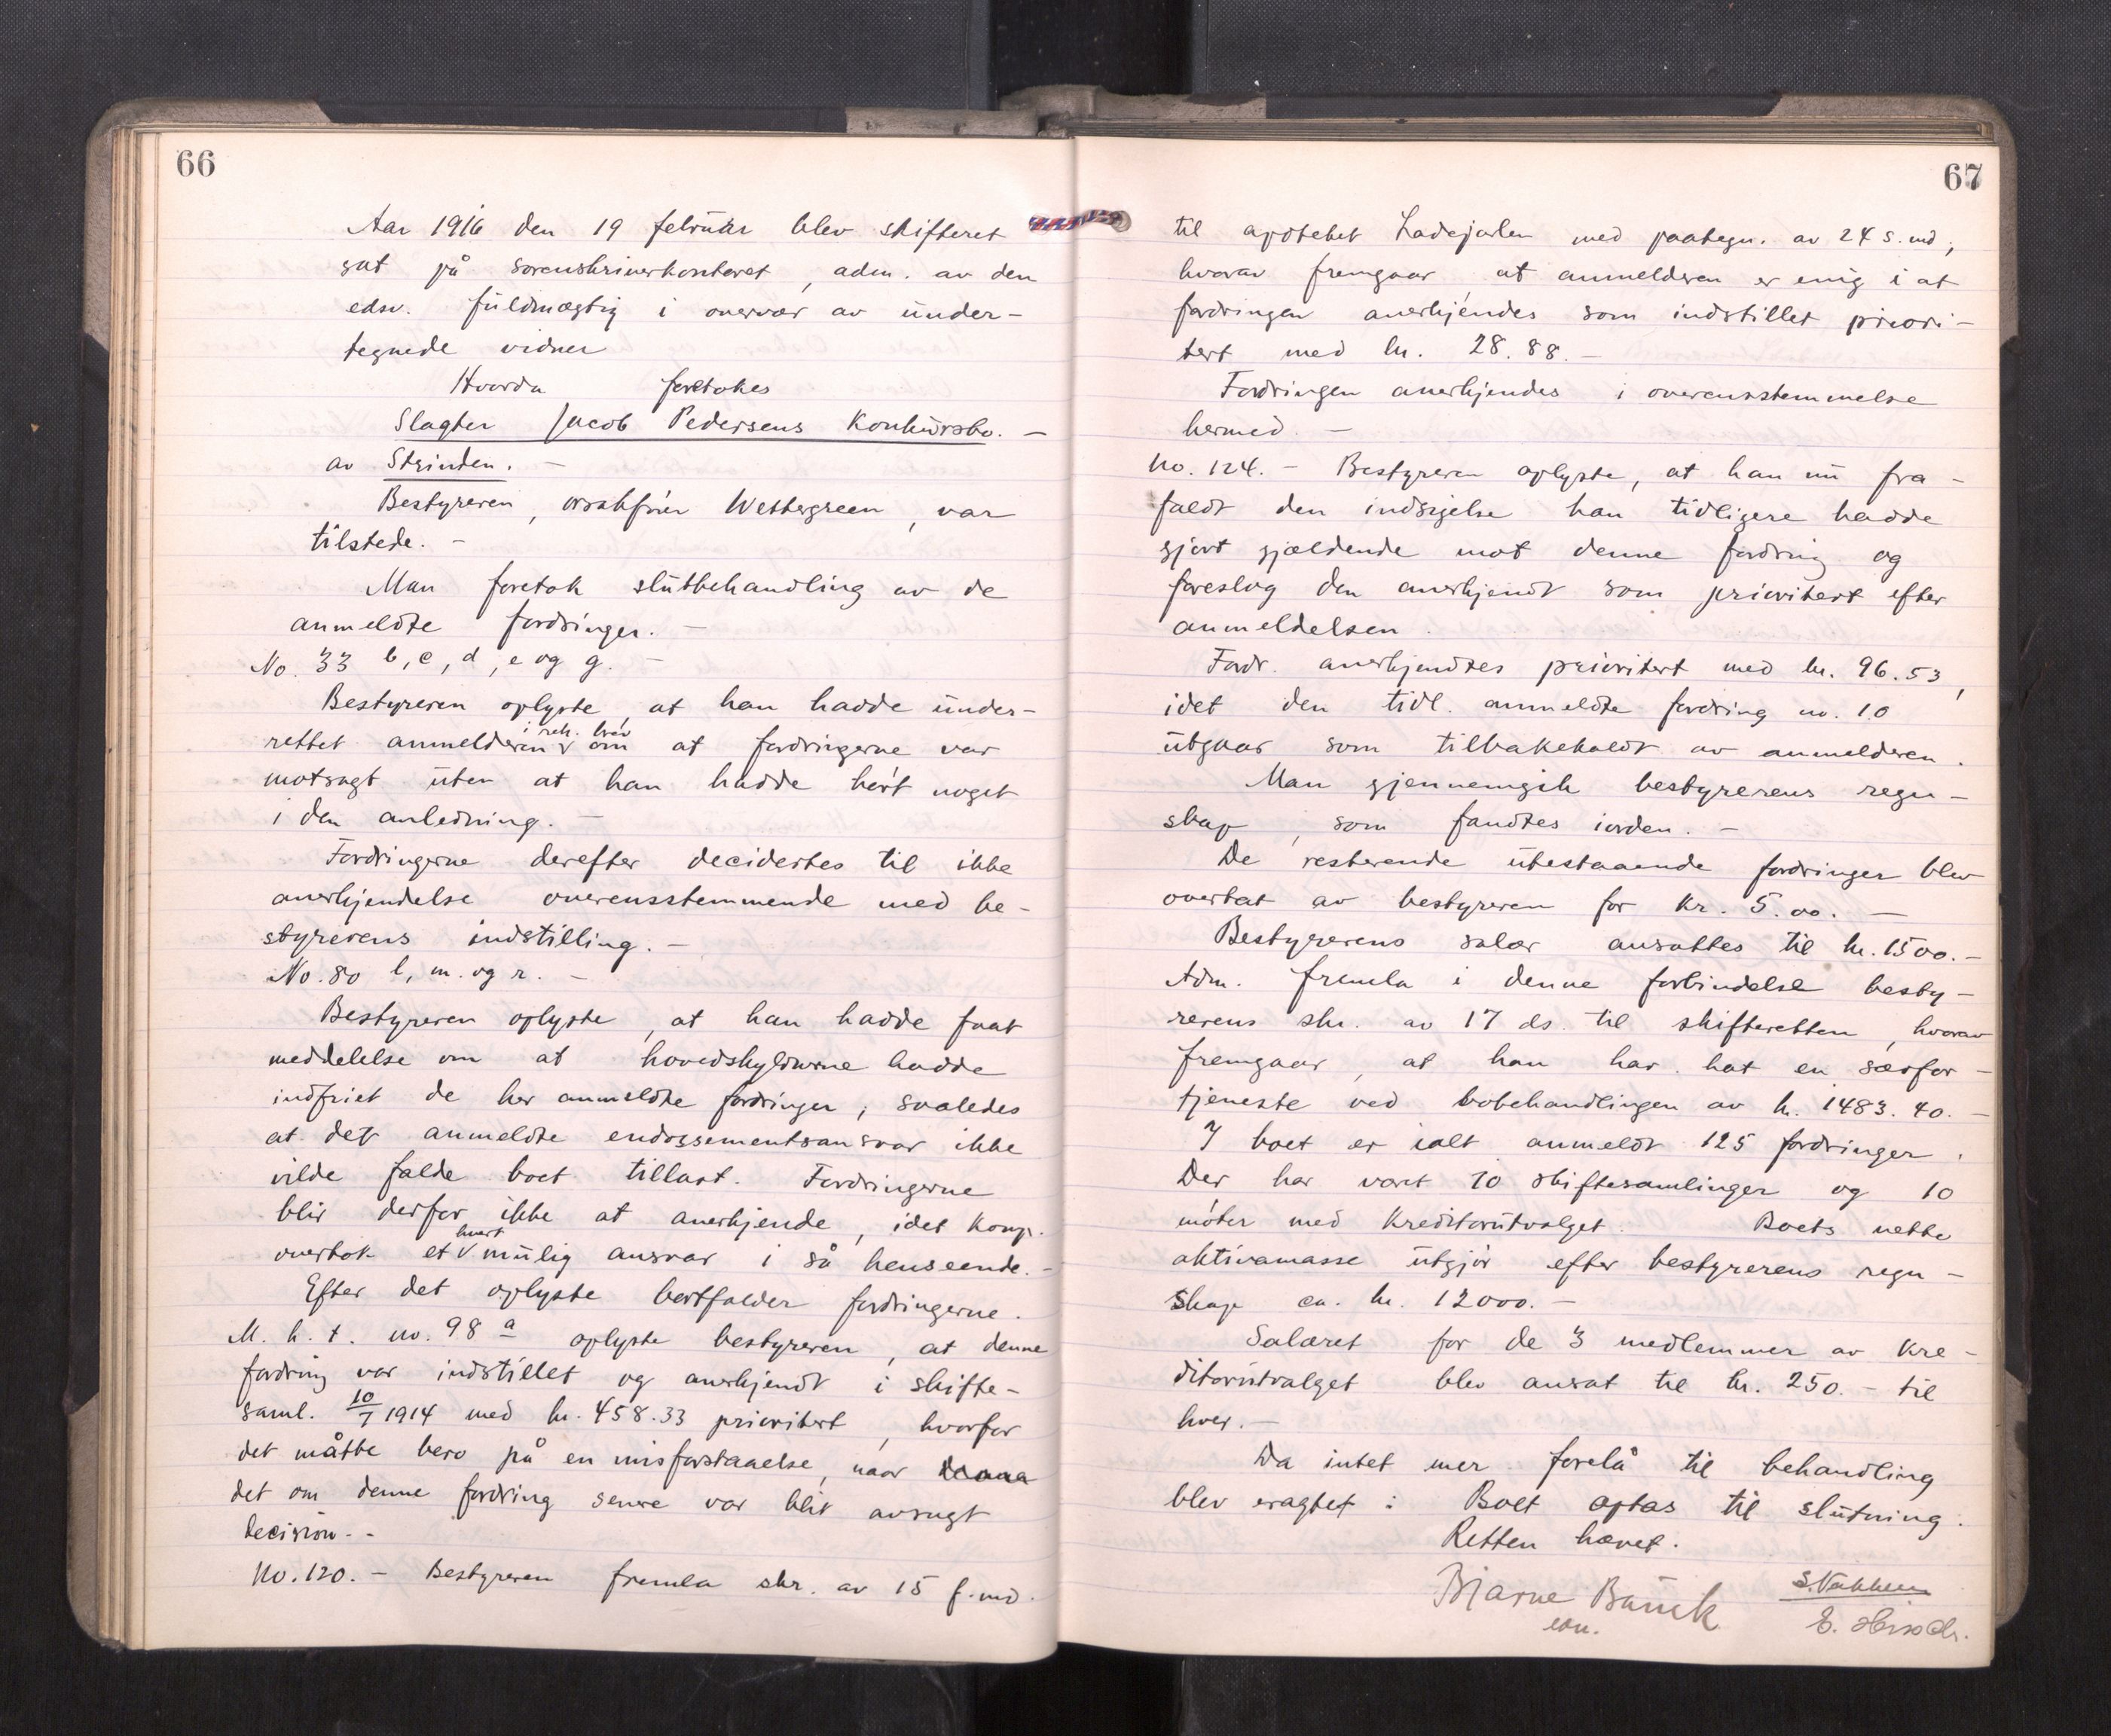 66
Aar 1916 den 19 februar blev skifteret
sat på sorenskriverkontoret, adm. av den
edsv. fuldmægtig i overvær av under-
tegnede vidner
Hvorda foretokes
Slagter Jacob Pedersens Konkursbo. -
av Strinden. -
Bestyreren, orsakfører Wettergreen, var
tilstede. -
Man foretok slutbehandling av de
anmeldte fordringer. -
No. 33 b, c, d, e og g. -
Bestyreren oplyste, at han hadde under-
rettet anmelderen i rek. brev om at fordringerne var
motsagt uten at han hadde hørt noget
i den anledning. -
Fordringerne derefter decidertes til ikke
anerkjendelse overensstemmende med be-
styrerens indstilling. -
No. 80 l, m. og r. -
Bestyreren oplyste, at han hadde faat
meddelelse om at hovedskyldnerne hadde
indfriet de her anmeldte fordringer, saaledes
at det anmeldte endossementsansvar ikke
vilde falde boet tillast. Fordringerne
blir derfor ikke at anerkjende, idet komp.
overtok et hvert mulig ansvar i så henseende. -
Efter det oplyste bortfalder fordringerne.
M. h. t. no. 98 a oplyste bestyreren, at denne
fordring var indstillet og anerkjendt i skifte-
saml. 10/7 1914 med kr. 458.33 prioritert, hvorfor
det måtte bero på en misforstaaelse, naar
det om denne fordring senere var blit avsagt
decision. -
No. 120. - Bestyreren fremla skr. av 15 f. md.
67
til apoteket Ladejarlen med paategn. av 24 s. md,
hvorav fremgaar, at anmelderen er enig i at
fordringen anerkjendes som indstillet priori-
tert med kr. 28.88. -
Fordringen anerkjendes i overensstemmelse
hermed. -
No. 124. - Bestyreren oplyste, at han nu fra-
faldt den indsigelse han tidligere hadde
gjort gjældende mot denne fordring og
foreslog den anerkjendt som prioritert efter
anmeldelsen.
Fordr. anerkjendtes prioritert med kr. 96.53,
idet den tidl. anmeldte fordring no. 10
utgaar som tilbakekaldt av anmelderen.
Man gjennemgik bestyrerens regn-
skap, som fandtes iorden. -
De resterende utestaaende fordringer blev
overtat av bestyreren for kr. 5.00. -
Bestyrerens salær ansattes til kr. 1500. -
Adm. fremla i denne forbindelse besty-
rerens skr. av 17 ds. til skifteretten, hvorav
fremgaar, at han har hat en særfor-
tjeneste ved bobehandlingen av kr. 1483.40. -
I boet er ialt anmeldt 125 fordringer.
Der har været 10 skiftesamlinger og 10
møter med kreditorutvalget. Boets netto
aktivamasse utgjør efter bestyrerens regn-
skap ca. kr. 12000. -
Salæret for de 3 medlemmer av kre-
ditorutvalget blev ansat til kr. 250. - til
hver. -
Da intet mer forelå til behandling
blev eragtet: Boet optas til slutning.
Retten hævet.
Bjarne Bunck
con.
S. Nakken
E. Hirsch.